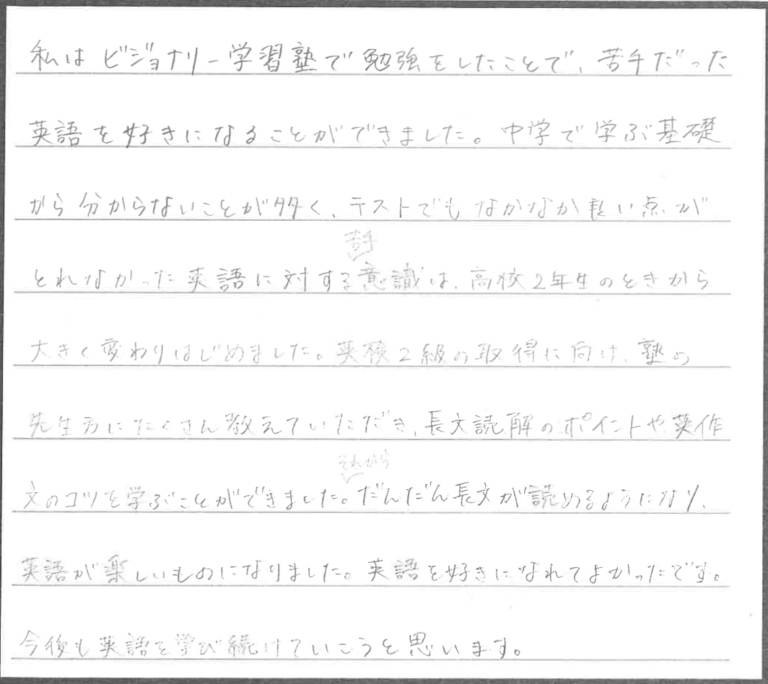 私はビジョナリー学習塾で勉強をしたことで、苦手だった
英語を好きになることができました。中学で学ぶ基礎
から分からないことが多く、テストでもなかなか良い点が
苦手
とれなかった英語に対する意識は、高校2年生のときから
大きく変わりはじめました。英検2級の取得に向け、塾の
先生方にたくさん教えていただき、長文読解のポイントや英作
それから
文のコツを学ぶことができました。だんだん長文が読めるようになり、
英語が楽しいものになりました。英語を好きになれてよかったです。
今後も英語を学び続けていこうと思います。